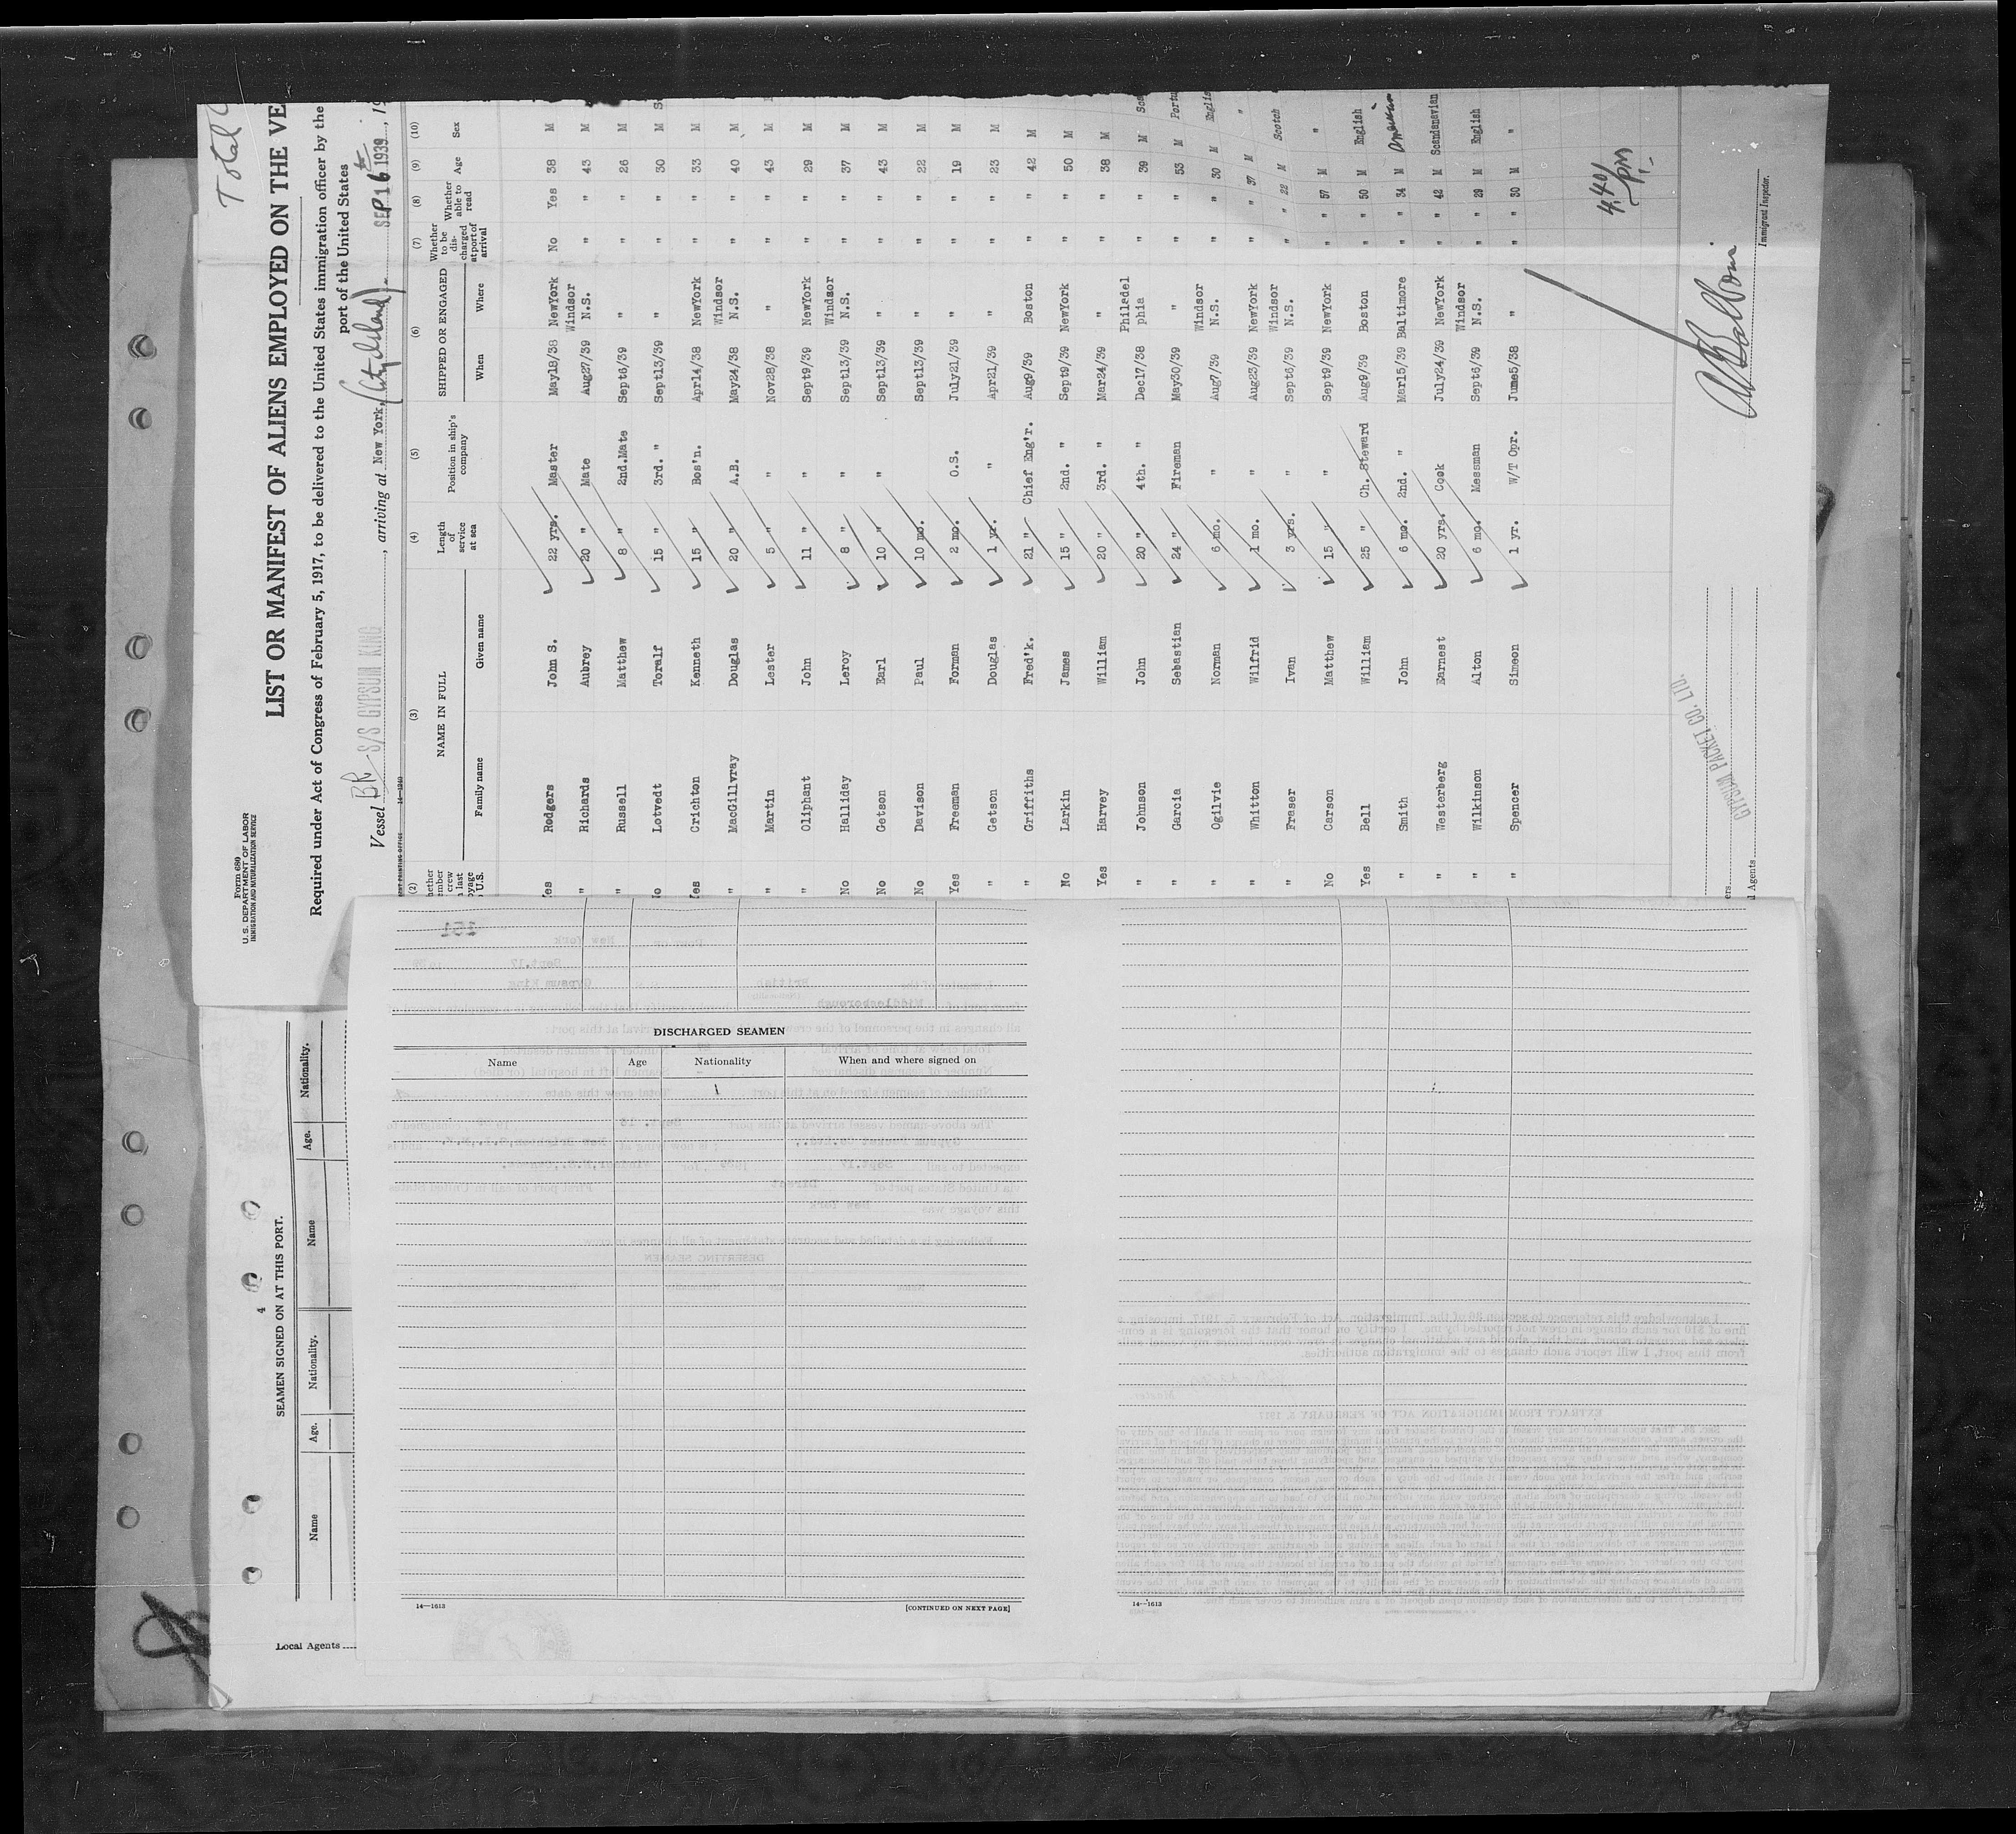 Total
Form 689
U.S. DEPARTMENT OF LABOR
IMMIGRATION AND NATURALIZATION SERVICE
LIST OR MANIFEST OF ALIENS EMPLOYED ON THE VE
Required under Act of Congress of February 5, 1917, to be delivered to the United States immigration officer by the
port of the United States
Vessel BR S/S GYPSUM KING, arriving at New York, SEP 16th 1939, 19
(2) (3) (4) (5) (6) (7) (8) (9) (10)
NAME IN FULL
Family name Given name
Length of service at sea
Position in ship's company
SHIPPED OR ENGAGED
When Where
Whether to be discharged at port of arrival
Whether able to read
Age Sex
Yes Rodgers John S. 22 yrs. Master May18/38 NewYork No Yes 38 M
" Richards Aubrey 20 " Mate Aug27/39 Windsor N.S. " " 43 M
" Russell Matthew 8 " 2nd.Mate Sept6/39 " " " 26 M
No Lotvedt Toralf 15 " 3rd. " Sept13/39 " " " 30 M
Yes Crichton Kenneth 15 " Bos'n. Apr14/38 NewYork " " 33 M
" MacGillvray Douglas 20 " A.B. May24/38 Windsor N.S. " " 40 M
" Martin Lester 5 " " Nov28/38 " " " 43 M
" Oliphant John 11 " " Sept9/39 NewYork " " 29 M
No Halliday Leroy 8 " " Sept13/39 Windsor N.S. " " 37 M
No Getson Earl 10 " " Sept13/39 " " " 43 M
No Davison Paul 10 mo. Sept13/39 " " " 22 M
Yes Freeman Forman 2 mo. O.S. July21/39 " " " 19 M
" Getson Douglas 1 yr. " Apr21/39 " " " 23 M
" Griffiths Fred'k. 21 " Chief Eng'r. Aug9/39 Boston " " 42 M
No Larkin James 15 " 2nd. " Sept9/39 NewYork " " 50 M
Yes Harvey William 20 " 3rd. " Mar24/39 " " " 38 M
" Johnson John 20 " 4th. " Dec17/38 Philadel phia " " 39 M
" Garcia Sebastian 24 " Fireman May30/39 " " " 53 M Portu
" Ogilvie Norman 6 mo. " Aug7/39 Windsor N.S. " " 30 M Englis
" Whitton Wilfrid 1 mo. " Aug23/39 NewYork " " 37 M "
" Fraser Ivan 3 yrs. " Sept6/39 Windsor N.S. " " 22 M Scotch
No Carson Matthew 15 " " Sept9/39 NewYork " " 57 M "
Yes Bell William 25 " Ch. Steward Aug9/39 Boston " " 50 M English
" Smith John 6 mo. 2nd. " Mar15/39 Baltimore " " 34 M
" Westerberg Earnest 20 yrs. Cook July24/39 NewYork " " 42 M Scandanavian
" Wilkinson Alton 6 mo. Messman Sept6/39 Windsor N.S. " " 29 M English
" Spencer Simeon 1 yr. W/T Opr. June5/38 " " " 30 M "
4.40 pm
Immigrant Inspector.
GYPSUM PACKET CO. LTD.
Agents
4
SEAMEN SIGNED ON AT THIS PORT.
Name Age. Nationality. Name Age. Nationality.
Local Agents
DISCHARGED SEAMEN
Name Age Nationality When and where signed on
14—1613
[CONTINUED ON NEXT PAGE]
14—1613